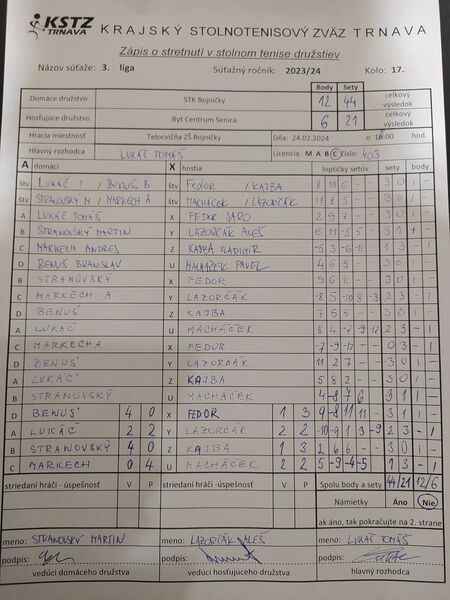 KSTZ TRNAVA KRAJSKÝ STOLNOTENISOVÝ ZVÄZ TRNAVA
Zápis o stretnutí v stolnom tenise družstiev
Názov súťaže: 3. liga Súťažný ročník: 2023/24 Kolo: 17.
Body Sety
Domáce družstvo STK Bojničky 12 44 celkový výsledok
Hosťujúce družstvo Byt Centrum Senica 6 21 celkový výsledok
Hracia miestnosť Telocvičňa ZŠ Bojničky Dňa: 24.02.2024 o hod.
Hlavný rozhodca: LUKÁČ TOMÁŠ Licencia: M A B C číslo: 403
A domáci X hostia loptičky setov sety body
štv LUKÁČ T / BENUŠ B štv FEDOR / KAJBA 8 10 6 - - 3 0 1 -
štv STRANOVSKÝ M / MARKECH A štv MACHÁČEK / LAZORČÁK 11 8 5 - - 3 0 1 -
A LUKÁČ TOMÁŠ X FEDOR JARO 2 9 7 - - 3 0 1 -
B STRANOVSKÝ MARTIN Y LAZORČÁK ALEŠ 3 1 1 -
C MARKECH ANDREJ Z KAJBA VLADIMÍR 1 3 - 1
D BENUŠ BRANISLAV U MACHÁČEK PAVEL 4 6 5 - - 3 0 1 -
B STRANOVSKÝ X FEDOR 3 0 1 -
C MARKECH A Y LAZORČÁK -8 5 -10 8 -3 2 3 - 1
D BENUŠ Z KAJBA 7 5 5 - - 3 0 1 -
A LUKÁČ U MACHÁČEK 8 4 -7 -9 -12 2 3 - 1
C MARKECH A X FEDOR -7 -9 -12 - - 0 3 - 1
D BENUŠ Y LAZORČÁK 11 2 7 - - 3 0 1 -
A LUKÁČ Z KAJBA 5 8 2 - - 3 0 1 -
B STRANOVSKÝ U MACHÁČEK 4 -8 7 6 3 1 1 -
D BENUŠ 4 0 X FEDOR 1 3 9 -8 11 11 - 3 1 1 -
A LUKÁČ 2 2 Y LAZORČÁK 2 2 -10 -9 1 3 -9 2 3 - 1
B STRANOVSKÝ 4 0 Z KAJBA 1 3 2 6 6 - - 3 0 1 -
C MARKECH 0 4 U MACHÁČEK 2 2 5 -9 -4 -5 1 3 - 1
striedaní hráči - úspech V P striedaní hráči - úspech V P Spolu body a sety 44/21 12/6
Námietky Áno Nie
ak áno, tak pokračujte na 2. strane
meno: STRANOVSKÝ MARTIN meno: LAZORČÁK ALEŠ meno: LUKÁČ TOMÁŠ
podpis: podpis: podpis:
vedúci domáceho družstva vedúci hosťujúceho družstva hlavný rozhodca